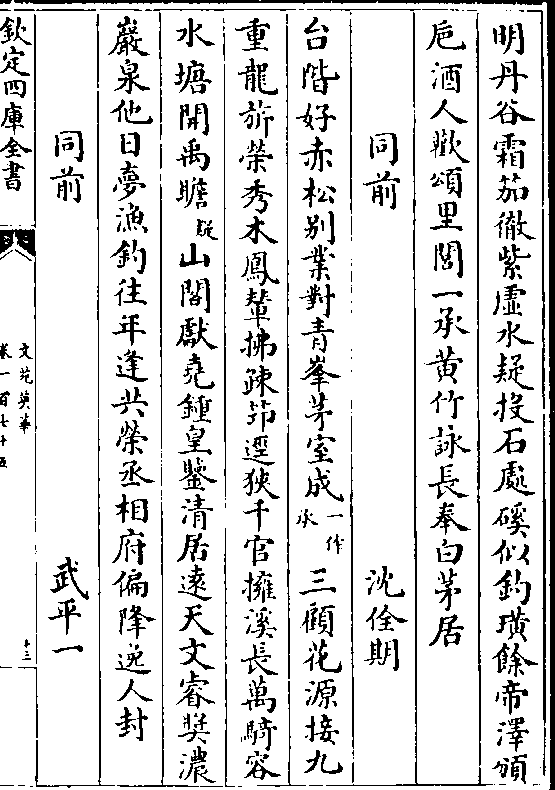 明丹谷霜笳徹紫虛水疑投石處磎似釣璜餘帝澤頒
巵酒人歡頌里閭一承黄竹詠長奉白茅居
同前 沈佺期
台階好赤松别業對青峯茅室成一作承三顧花源接九
重龍旂榮秀木鳳輦拂疎筇逕狹千官擁溪長萬騎容
水塘開禹膽疑山閣獻堯鍾皇鑒清居遠天文睿奬濃
巖泉他日夢漁釣往年逢共榮丞相府偏降逸人封
同前 武平一
欽定四庫全書
文苑英華
卷一百七十五
十三